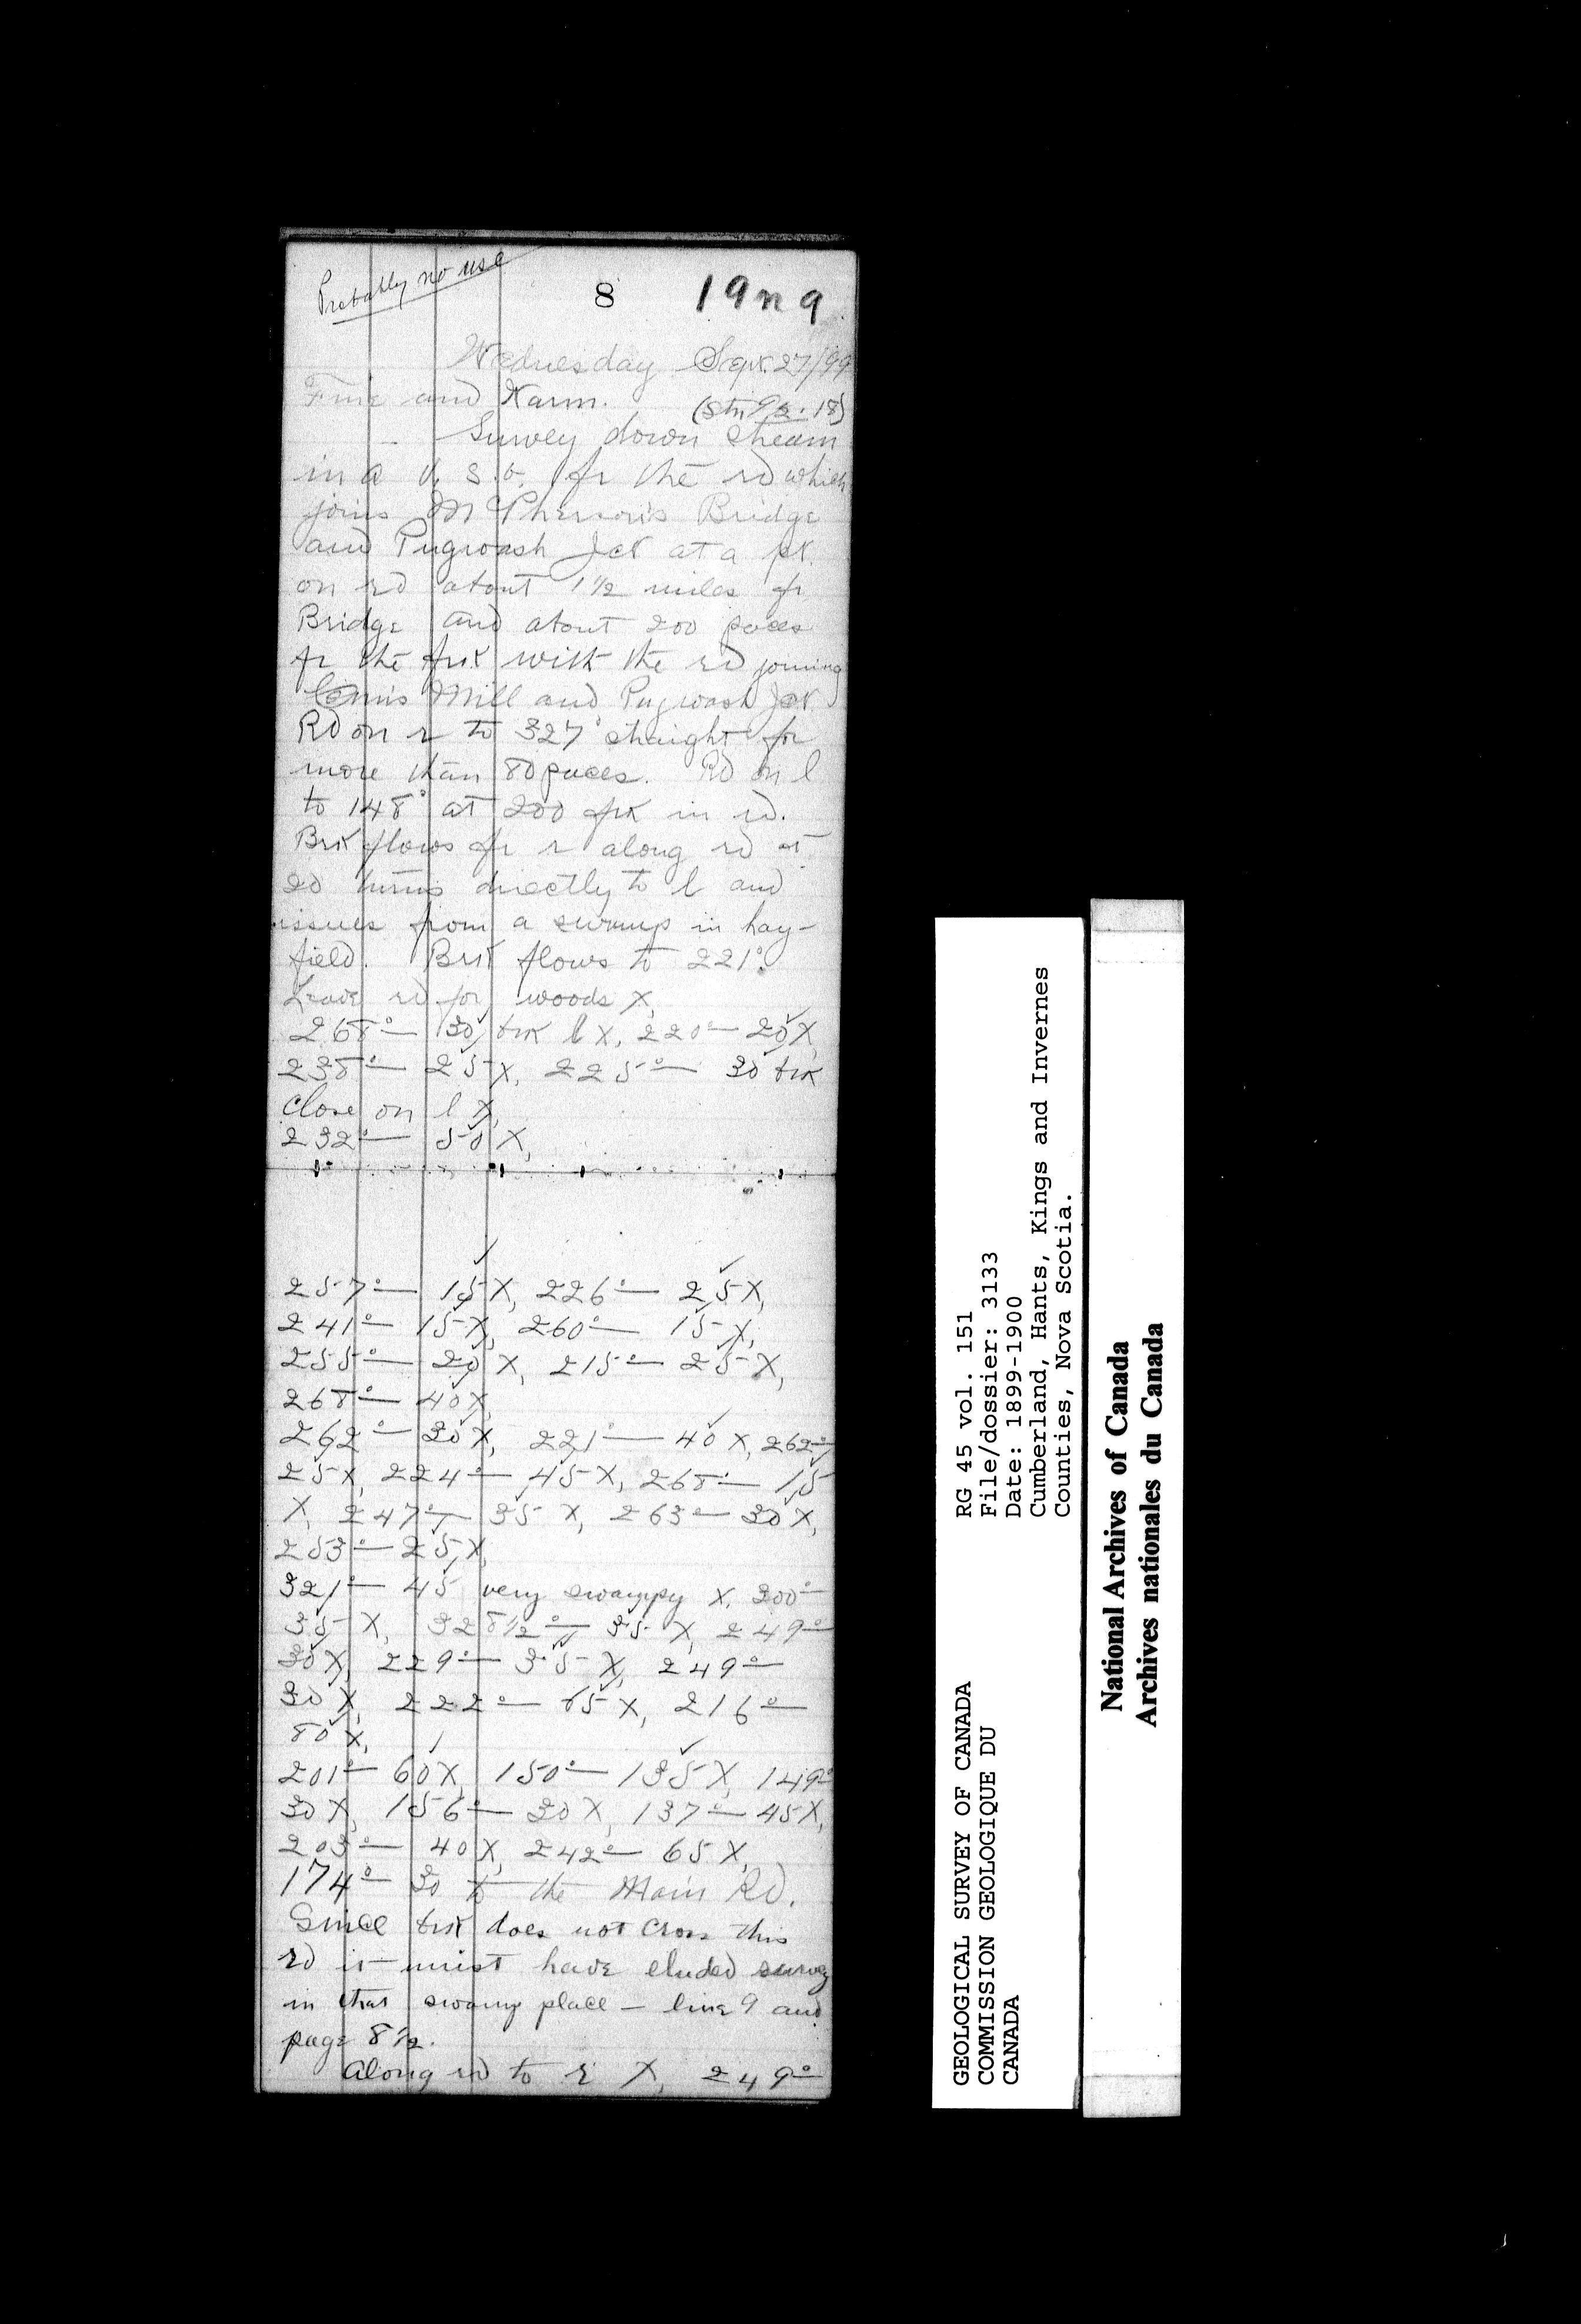 Probably no use
8 19n9
Wednesday Sept. 27/99
Fine and Warm. (Stn 9 p. 18)
Survey down stream
in a fr the rd which
joins McPherson's Bridge
and Pugwash Jct at a pt.
on rd about 1½ miles fr
Bridge and about 200 paces
fr the frk with the rd joining
Mill and Pugwash Jct.
Rd on r to 327° straight for
more than 80 paces. Rd on l
to 148° at 200 frk in rd.
Brk flows fr r along rd at
20 turns directly to l and
issues from a swamp in hay-
field. Brk flows to 221°.
Leave rd for woods X,
268°— 30 brk l X, 220°— 20 X,
238°— 25 X, 225°— 30 brk
close on l X,
232°— 50 X,
257°— 15 X, 226°— 25 X,
241°— 15 X, 260°— 15 X,
255°— 20 X, 215°— 25 X,
268°— 40 X,
262°— 30 X, 221°— 40 X, 262°—
25 X, 224°— 45 X, 268°— 15
X, 247°— 35 X, 263°— 30 X,
253°— 25 X,
321°— 45 very swampy X, 200°—
35 X, 328½°— 35 X, 249°—
30 X, 229°— 35 X, 249°—
30 X, 222°— 65 X, 216°—
80 X,
201°— 60 X, 150°— 135 X, 149°—
30 X, 156°— 30 X, 137°— 45 X,
203°— 40 X, 242°— 65 X,
174°— 30 to the Main Rd.
Since brk does not cross this
rd it must have eluded survey
in that swamp place — line 9 and
page 8½.
Along rd to r X, 249°—
GEOLOGICAL SURVEY OF CANADA
COMMISSION GEOLOGIQUE DU
CANADA
RG 45 vol. 151
File/dossier: 3133
Date: 1899-1900
Cumberland, Hants, Kings and Invernes
Counties, Nova Scotia.
National Archives of Canada
Archives nationales du Canada